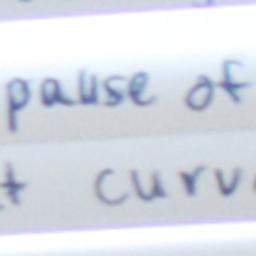 pause of
t curv